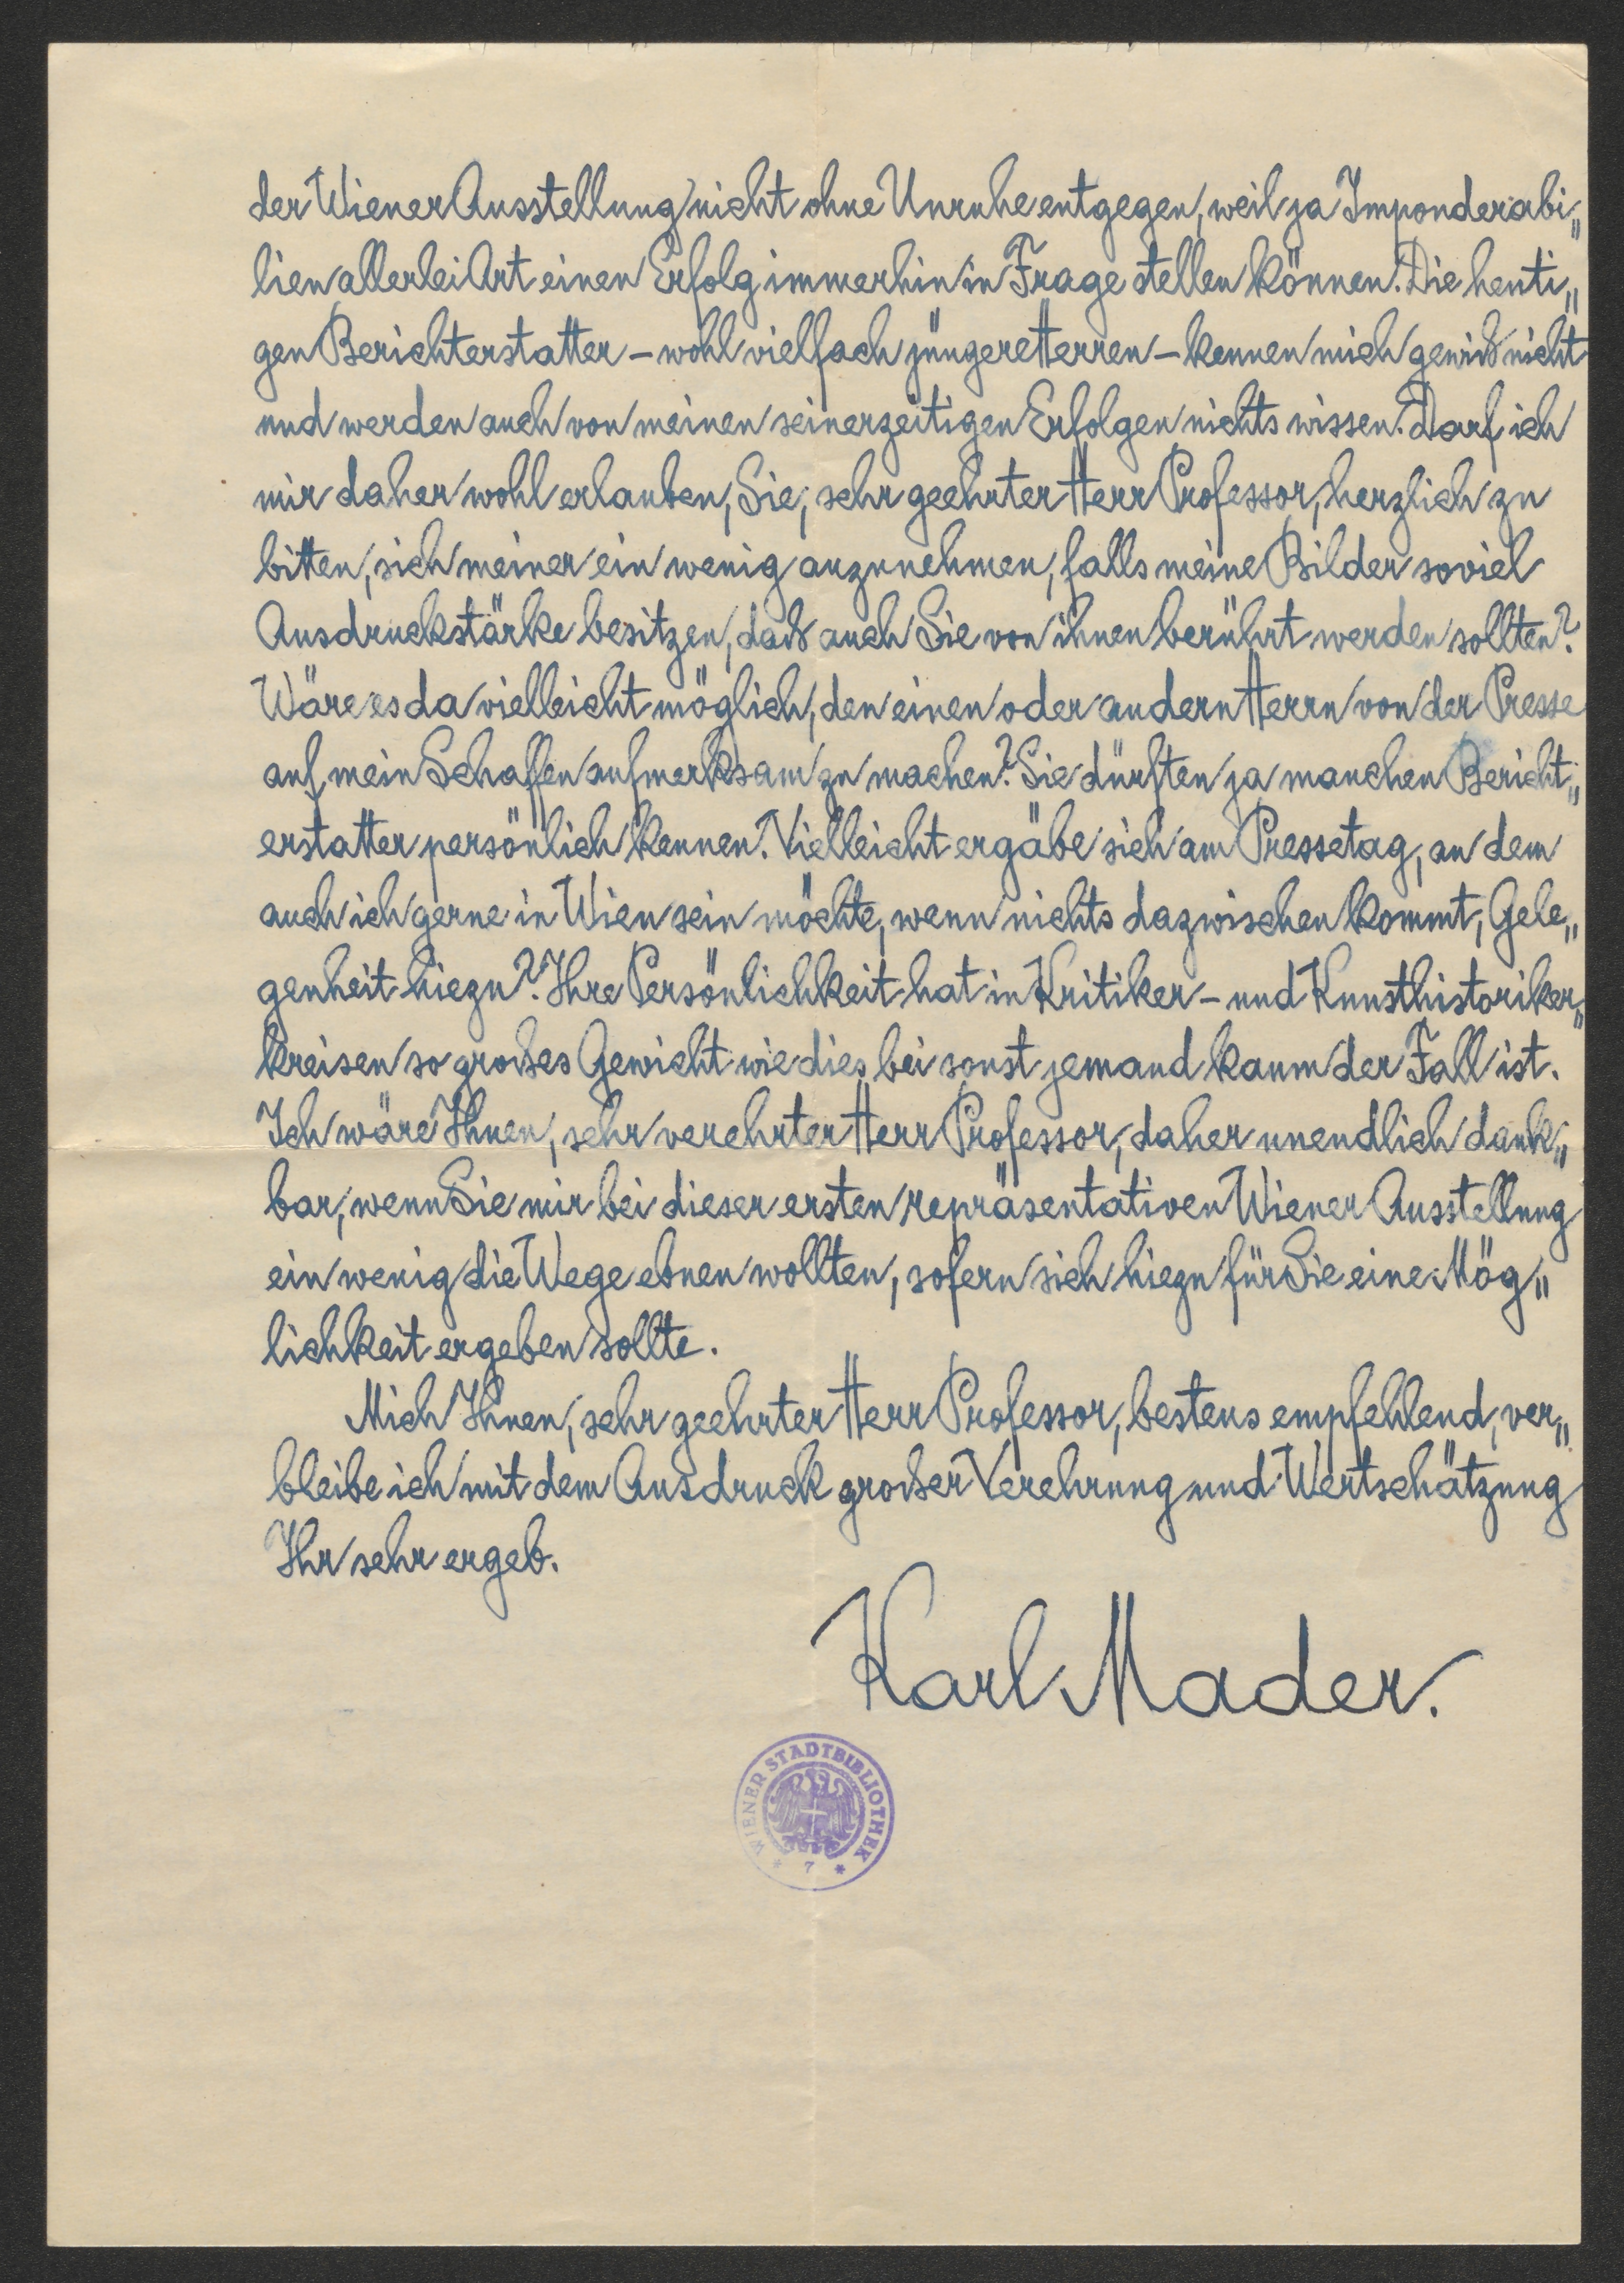 der Wiener Ausstellung nicht ohne Unruhe entgegen, weil ja Imponderabi„
lien allerlei Art einen Erfolg immerhin in Frage stellen können. Die heuti„
gen Berichterstatter – wohl vielfach jüngere Herren – kennen mich gewiß nicht
und werden auch von meinen seinerzeitigen Erfolgen nichts wissen. Darf ich
mir daher wohl erlauben, Sie, sehr geehrter Herr Professor, herzlich zu
bitten, sich meiner ein wenig anzunehmen, falls meine Bilder soviel
Ausdruckstärke besitzen, daß auch Sie von ihnen berührt werden sollten?
Wäre es da vielleicht möglich, den einen oder andern Herrn von der Presse
auf mein Schaffen aufmerksam zu machen? Sie dürften ja manchen Bericht„
erstatter persönlich kennen. Vielleicht ergäbe sich am Pressetag, an dem
auch ich gerne in Wien sein möchte, wenn nichts dazwischen kommt, Gele„
genheit hiezu? Ihre Persönlichkeit hat in Kritiker- und Kunsthistoriker„
kreisen so großes Gewicht wie dies bei sonst jemand kaum der Fall ist.
Ich wäre Ihnen, sehr verehrter Herr Professor, daher unendlich dank„
bar, wenn Sie mir bei dieser ersten repräsentativen Wiener Ausstellung
ein wenig die Wege ebnen wollten, sofern sich hiezu für Sie eine Mög„
lichkeit ergeben sollte.
Mich Ihnen, sehr geehrter Herr Professor, bestens empfehlend, ver„
bleibe ich mit dem Ausdruck großer Verehrung und Wertschätzung
Ihr sehr ergeb.
Karl Mader.
WIENER STADTBIBLIOTHEK
* 7 *